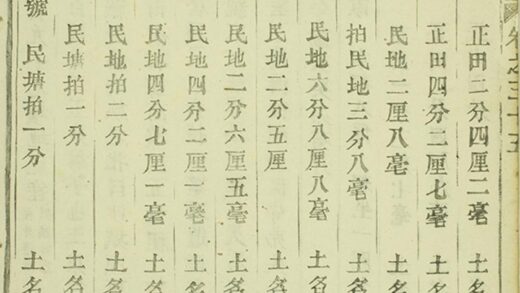 卷之三十五
正田二分四厘二毫 土名
正田四分二厘七毫 土名
民地二厘八毫 土名
拍民地三分八毫 土名
民地六分八厘八毫 土名
民地二分五厘 土名
民地二分六厘五毫 土名
民地四分二厘一毫 土名
民地四分七厘一毫 土名
民地拍二分 土名
民塘拍一分 土名
號 民塘拍一分 土名